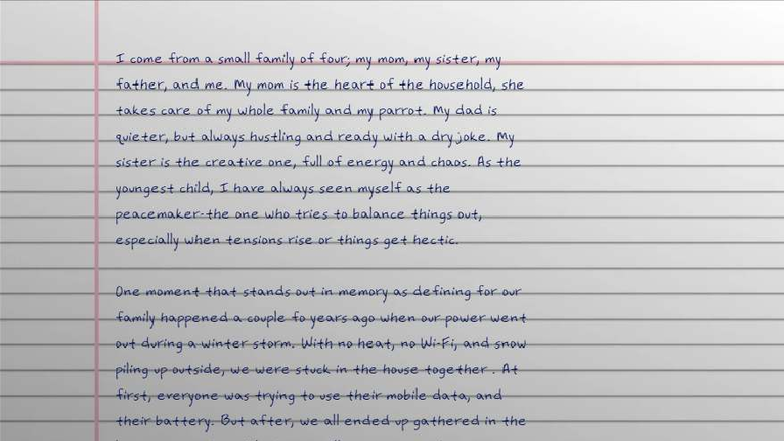 I come from a small family of four; my mom, my sister, my
father, and me. My mom is the heart of the household, she
takes care of my whole family and my parrot. My dad is
quieter, but always hustling and ready with a dry joke. My
sister is the creative one, full of energy and chaos. As the
youngest child, I have always seen myself as the
peacemaker-the one who tries to balance things out,
especially when tensions rise or things get hectic.
One moment that stands out in memory as defining for our
family happened a couple fo years ago when our power went
out during a winter storm. With no heat, no Wi-Fi, and snow
piling up outside, we were stuck in the house together. At
first, everyone was trying to use their mobile data, and
their battery. But after, we all ended up gathered in the